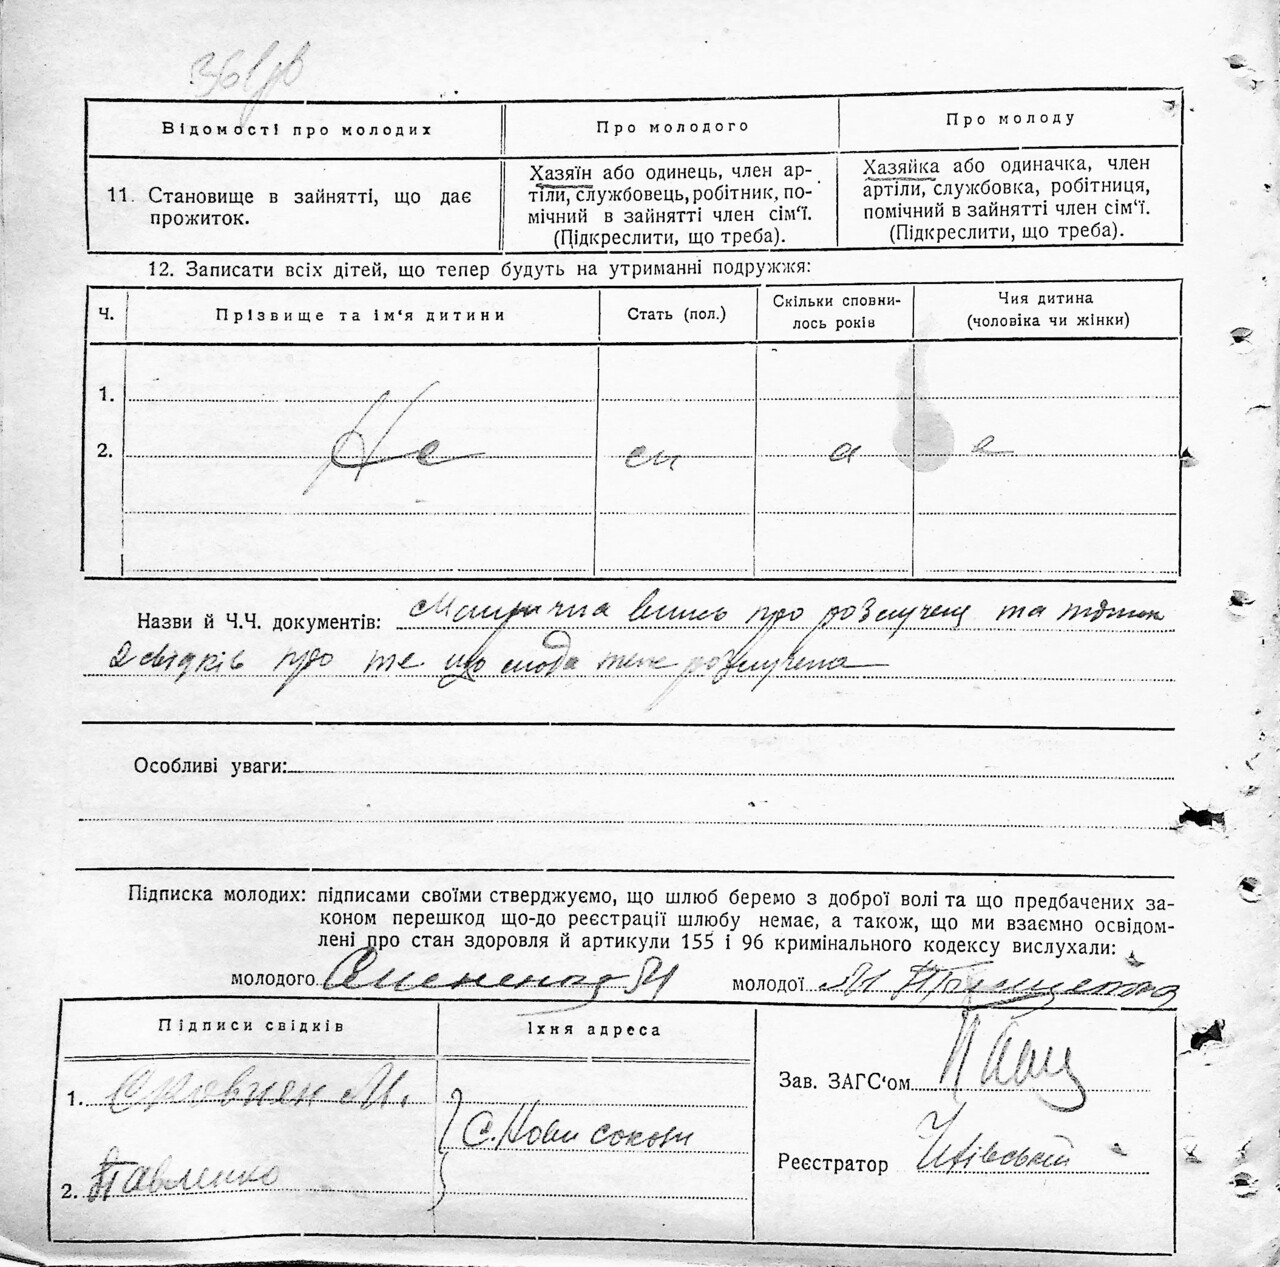 Відомості про молодих
Про молодого
Про молоду
11. Становище в зайнятті, що дає
прожиток.
Хазяїн або одинець, член ар-
тіли, службовець, робітник, по-
мічний в зайнятті член сім‘ї.
(Підкреслити, що треба).
Хазяйка або одиначка, член
артіли, службовка, робітниця,
помічний в зайнятті член сім‘ї.
(Підкреслити, що треба).
12. Записати всіх дітей, що тепер будуть на утриманні подружжя:
Ч.
Прізвище та ім‘я дитини
Стать (пол.)
Скільки сповни-
лось років
Чия дитина
(чоловіка чи жінки)
1.
2. Не
Назви й Ч.Ч. документів: про та
2 свідків про те що
Особливі уваги:
Підписка молодих: підписами своїми стверджуємо, що шлюб беремо з доброї волі та що предбачених за-
коном перешкод що-до реєстрації шлюбу немає, а також, що ми взаємно освідом-
лені про стан здоровля й артикули 155 і 96 кримінального кодексу вислухали:
молодого
молодої
Підписи свідків
Їхня адреса
1.
2. Павленко
с. Нови
Зав. ЗАГС‘ом
Реєстратор